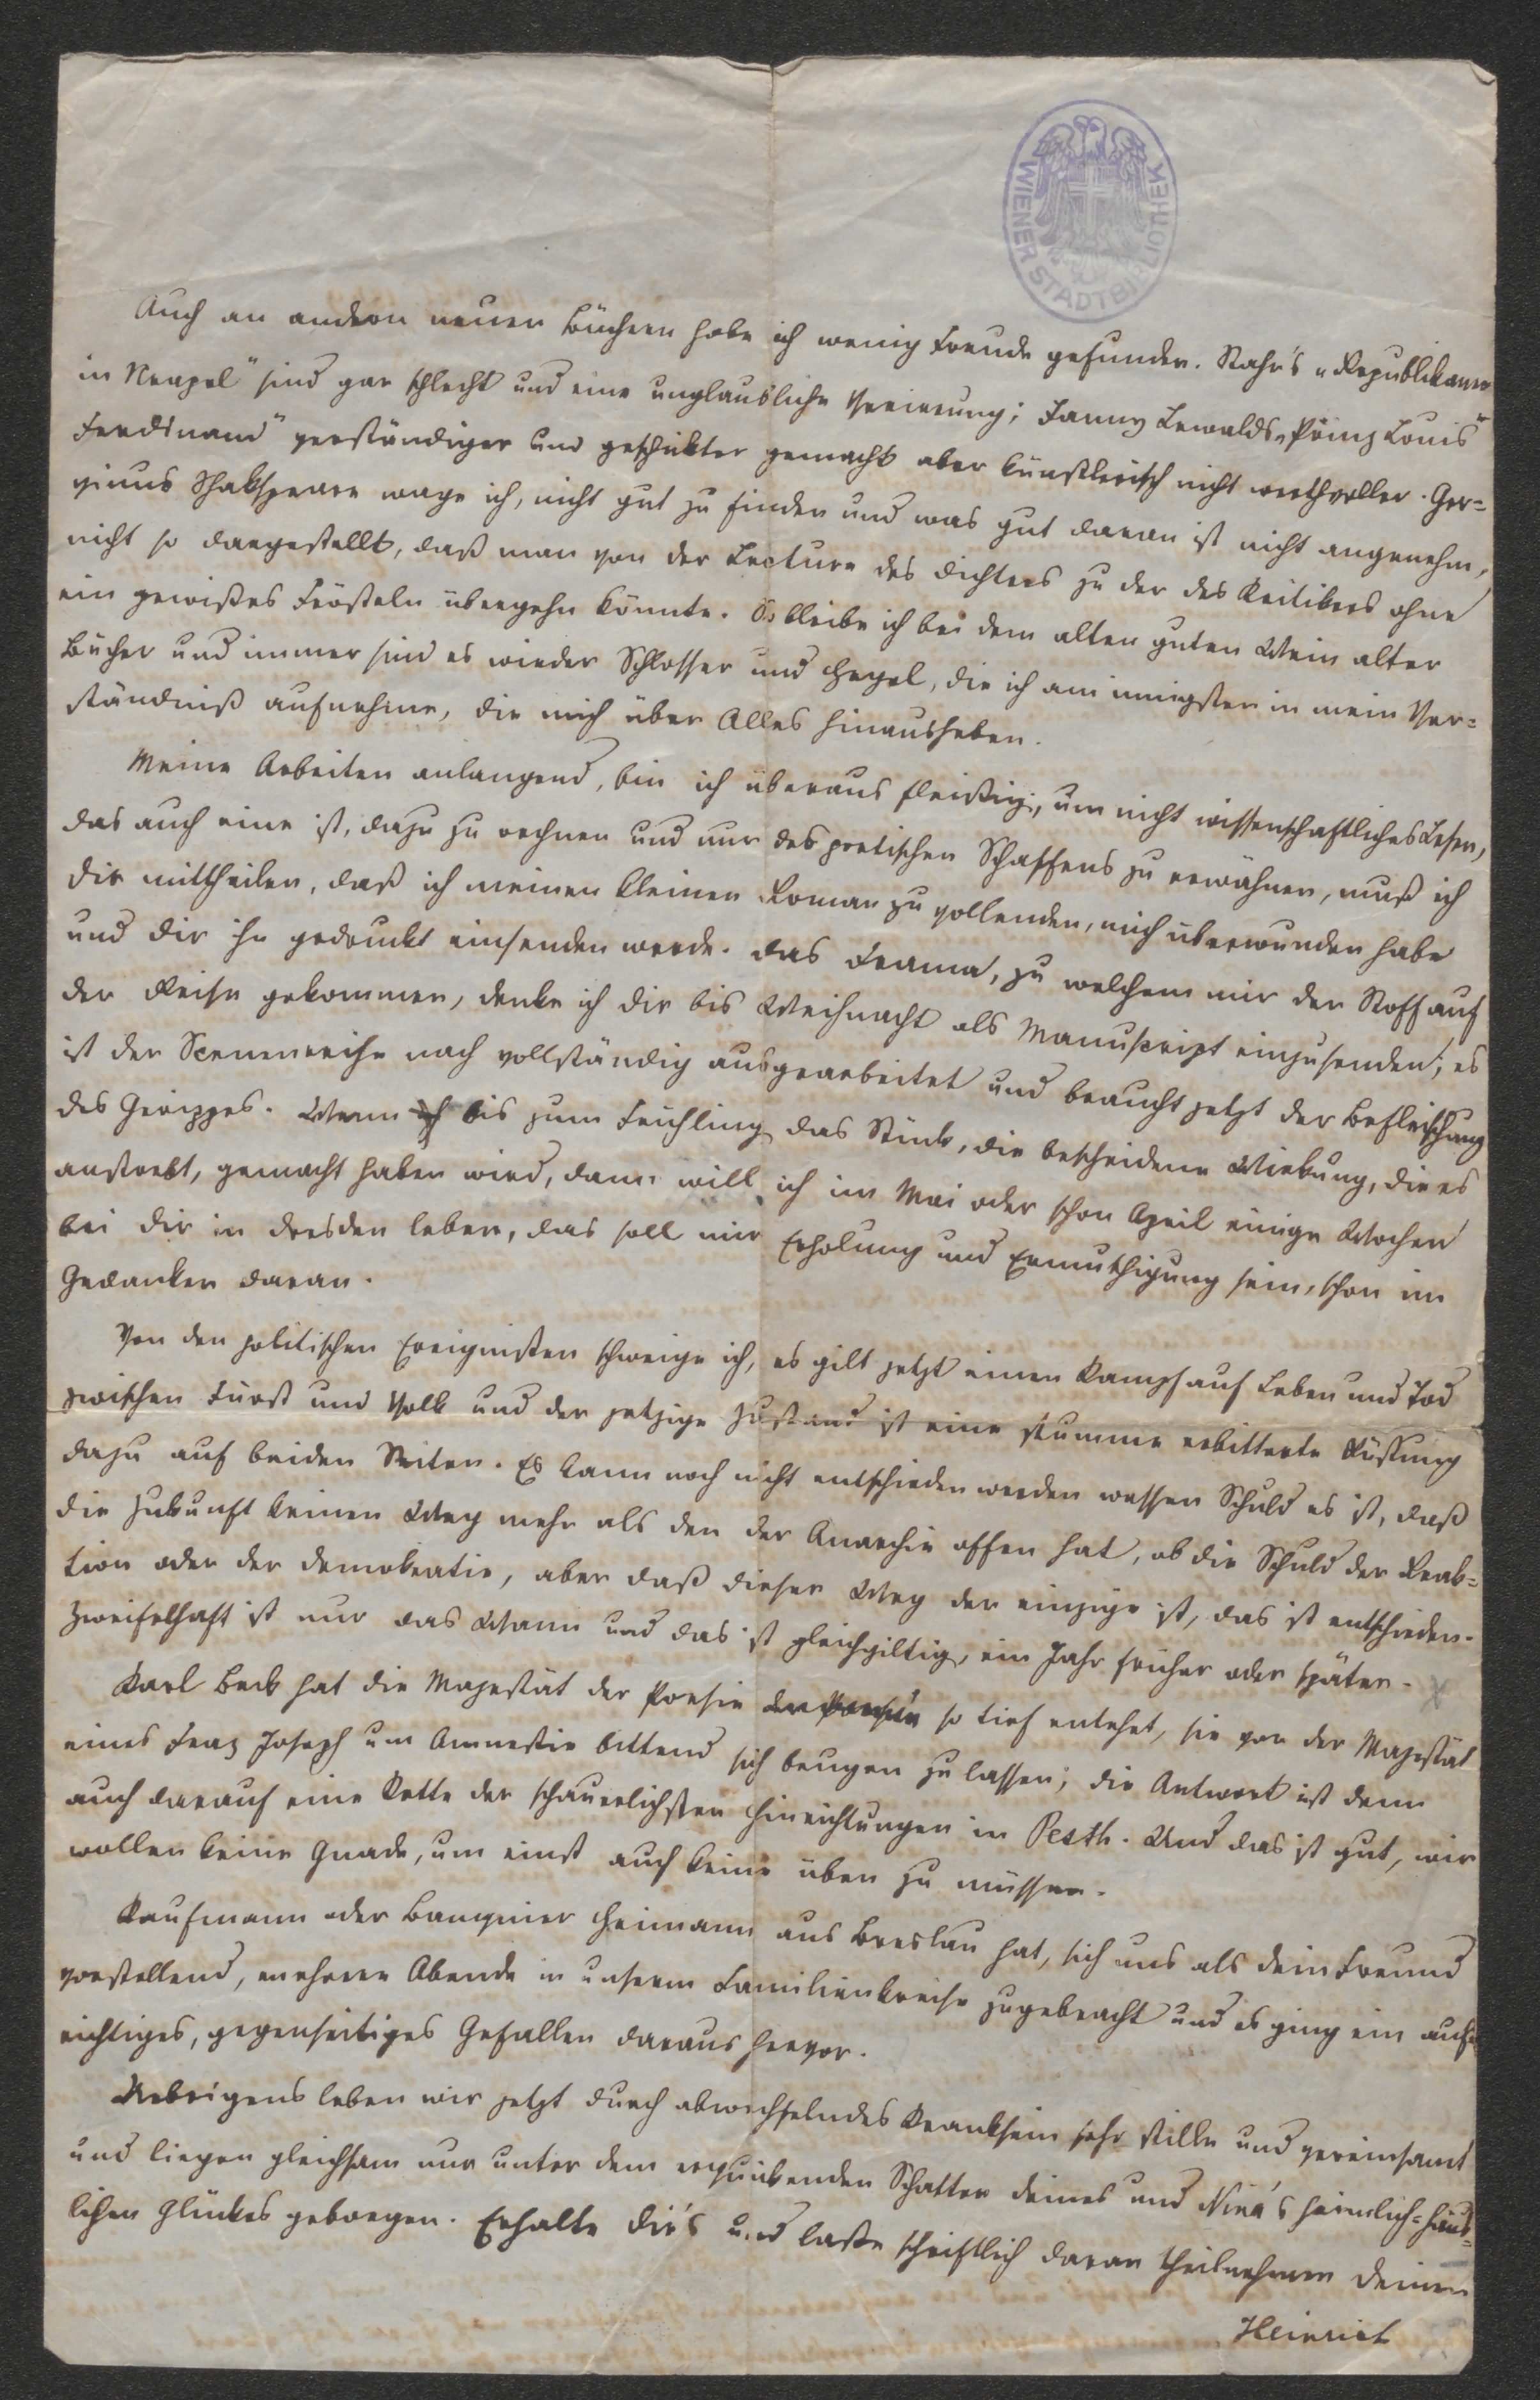 WIENER STADTBIBLIOTHEK
Auch an andern neuen Büchern habe ich wenig Freude gefunden. Stahr's „Republikaner
in Neapel" sind gar schlecht und eine unglaubliche Verirrung; Fanny Lewalds „Prinz Louis
Ferdinand" verständiger und geschickter gemacht aber künstlerisch nicht werthvoller. Ger=
vinus Shakspeare wage ich, nicht gut zu finden und was gut daran ist nicht angenehm,
nicht so dargestellt, daß man von der Lecture des Dichters zu der des Kritikers ohne
ein gewißes Frösteln übergehn könnte. So bleibe ich bei dem alten guten Wein alter
Bücher und immer sind es wieder Schlosser und Hegel, die ich am innigsten in mein Ver=
ständniß aufnehme, die mich über Alles hinausheben.
Meine Arbeiten anlangend, bin ich überaus fleißig; um nicht wissenschaftliches Lesen,
das auch eine ist, dazu zu rechnen und nur des poetischen Schaffens zu erwähnen, muß ich
dir mittheilen, daß ich meinen kleinen Roman zu vollenden, mich überwunden habe
und dir ihn gedruckt einsenden werde. Das Drama, zu welchem mir der Stoff auf
der Reise gekommen, denke ich dir bis Weihnacht als Manuscript einzusenden; es
ist der Scenenreihe nach vollständig ausgearbeitet und braucht jetzt der Befleischung
des Gerippes. Wenn ich bis zum Frühling das Stück, die bescheidene Wirkung, die es
anstrebt, gemacht haben wird, dann will ich im Mai oder schon April einige Wochen
bei dir in Dresden leben, das soll mir Erholung und Ermuthigung sein, schon im
Gedanken daran.
Von den politischen Ereignißen schweige ich, es gilt jetzt einen Kampf auf Leben und Tod
zwischen Fürst und Volk und der jetzige Zustand ist eine stumme erbitterte Rüstung
dazu auf beiden Seiten. Es kann noch nicht entschieden werden wessen Schuld es ist, daß
die Zukunft keinen Weg mehr als den der Anarchie offen hat, ob die Schuld der Reak=
tion oder der Demokratie, aber daß dieser Weg der einzige ist, das ist entschieden.
Zweifelhaft ist nur das Wann und das ist gleichgiltig, ein Jahr früher oder später.
Karl Beck hat die Majestät der Poesie so tief entehrt, sie vor der Majestät
eines Franz Joseph um Amnestie bittend sich beugen zu lassen; die Antwort ist denn
auch darauf eine Kette der schauerlichsten Hinrichtungen in Pesth. Und das ist gut, wir
wollen keine Gnade, um einst auch keine üben zu müssen.
Kaufmann oder Banquier Heimann aus Breslau hat, sich uns als dein Freund
vorstellend, mehrere Abende in unserm Familienkreise zugebracht und es ging ein auf=
richtiges, gegenseitiges Gefallen daraus hervor.
Uebrigens leben wir jetzt durch abwechselndes Kranksein sehr stille und vereinsamt
und liegen gleichsam nur unter dem erquickenden Schatten deines und Nina's heimlich=häus=
lichen Glückes geborgen. Erhalte dir's und laße schriftlich daran theilnehmen deinen
Heinrich